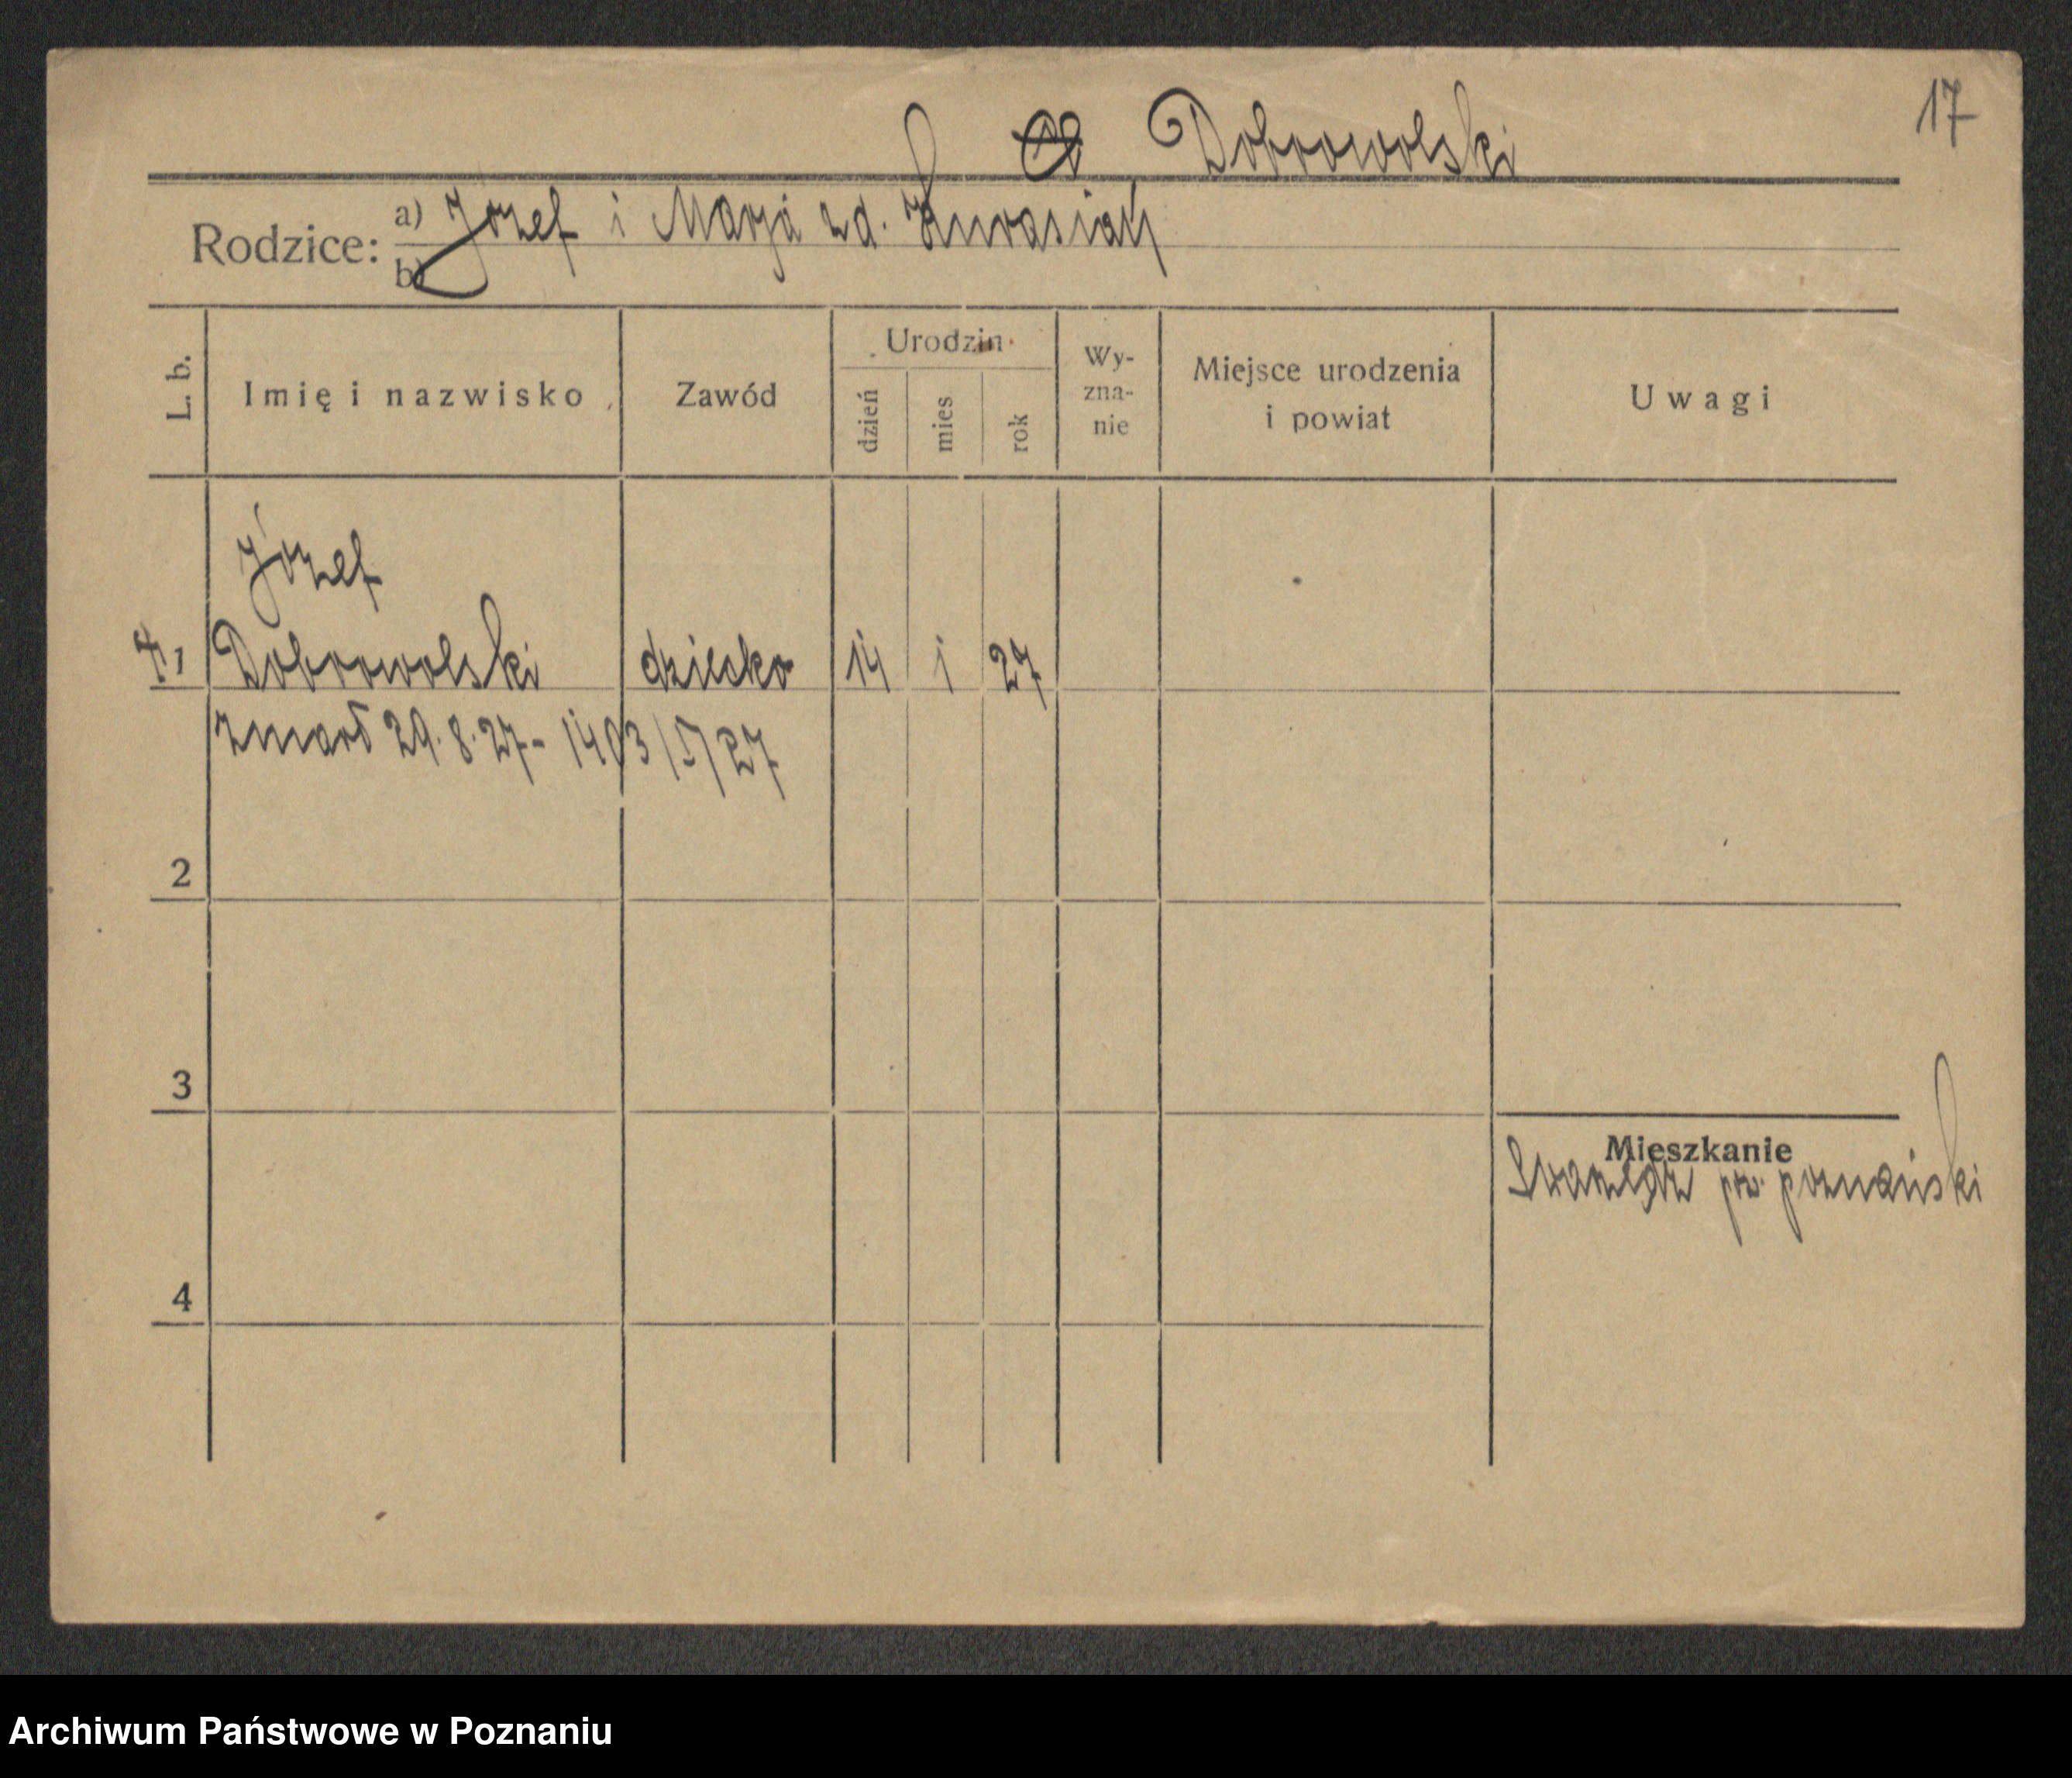 17
Dobrowolski
Rodzice: a) Józef i Marja zd.
b)
L. b.
Imię i nazwisko
Zawód
Urodzin
dzień
mies
rok
Wy-
zna-
nie
Miejsce urodzenia
i powiat
Uwagi
Józef
1 Dobrowolski dziecko 14 1 27
zmarł 29.8.27 - 1403/V/27
2
3
Mieszkanie
Swarzędz pow. poznański
4
Archiwum Państwowe w Poznaniu